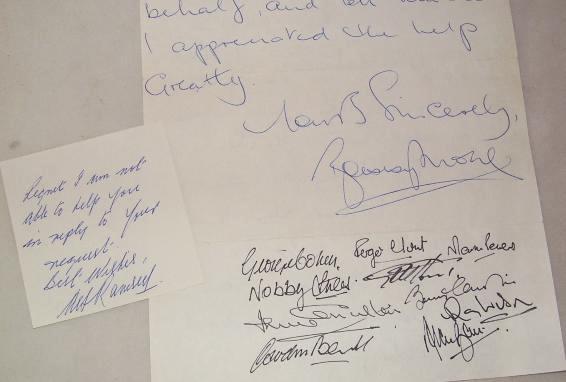 behalf, and
I appreciated the help
Greatly.
Yours Sincerely,
Bobby Moore
Regret I am not
able to help you
in reply to your
request.
Best Wishes,
Alf Ramsey
George Cohen Roger Hunt Martin Peters
Nobby Stiles
Ray Wilson
Gordon Banks